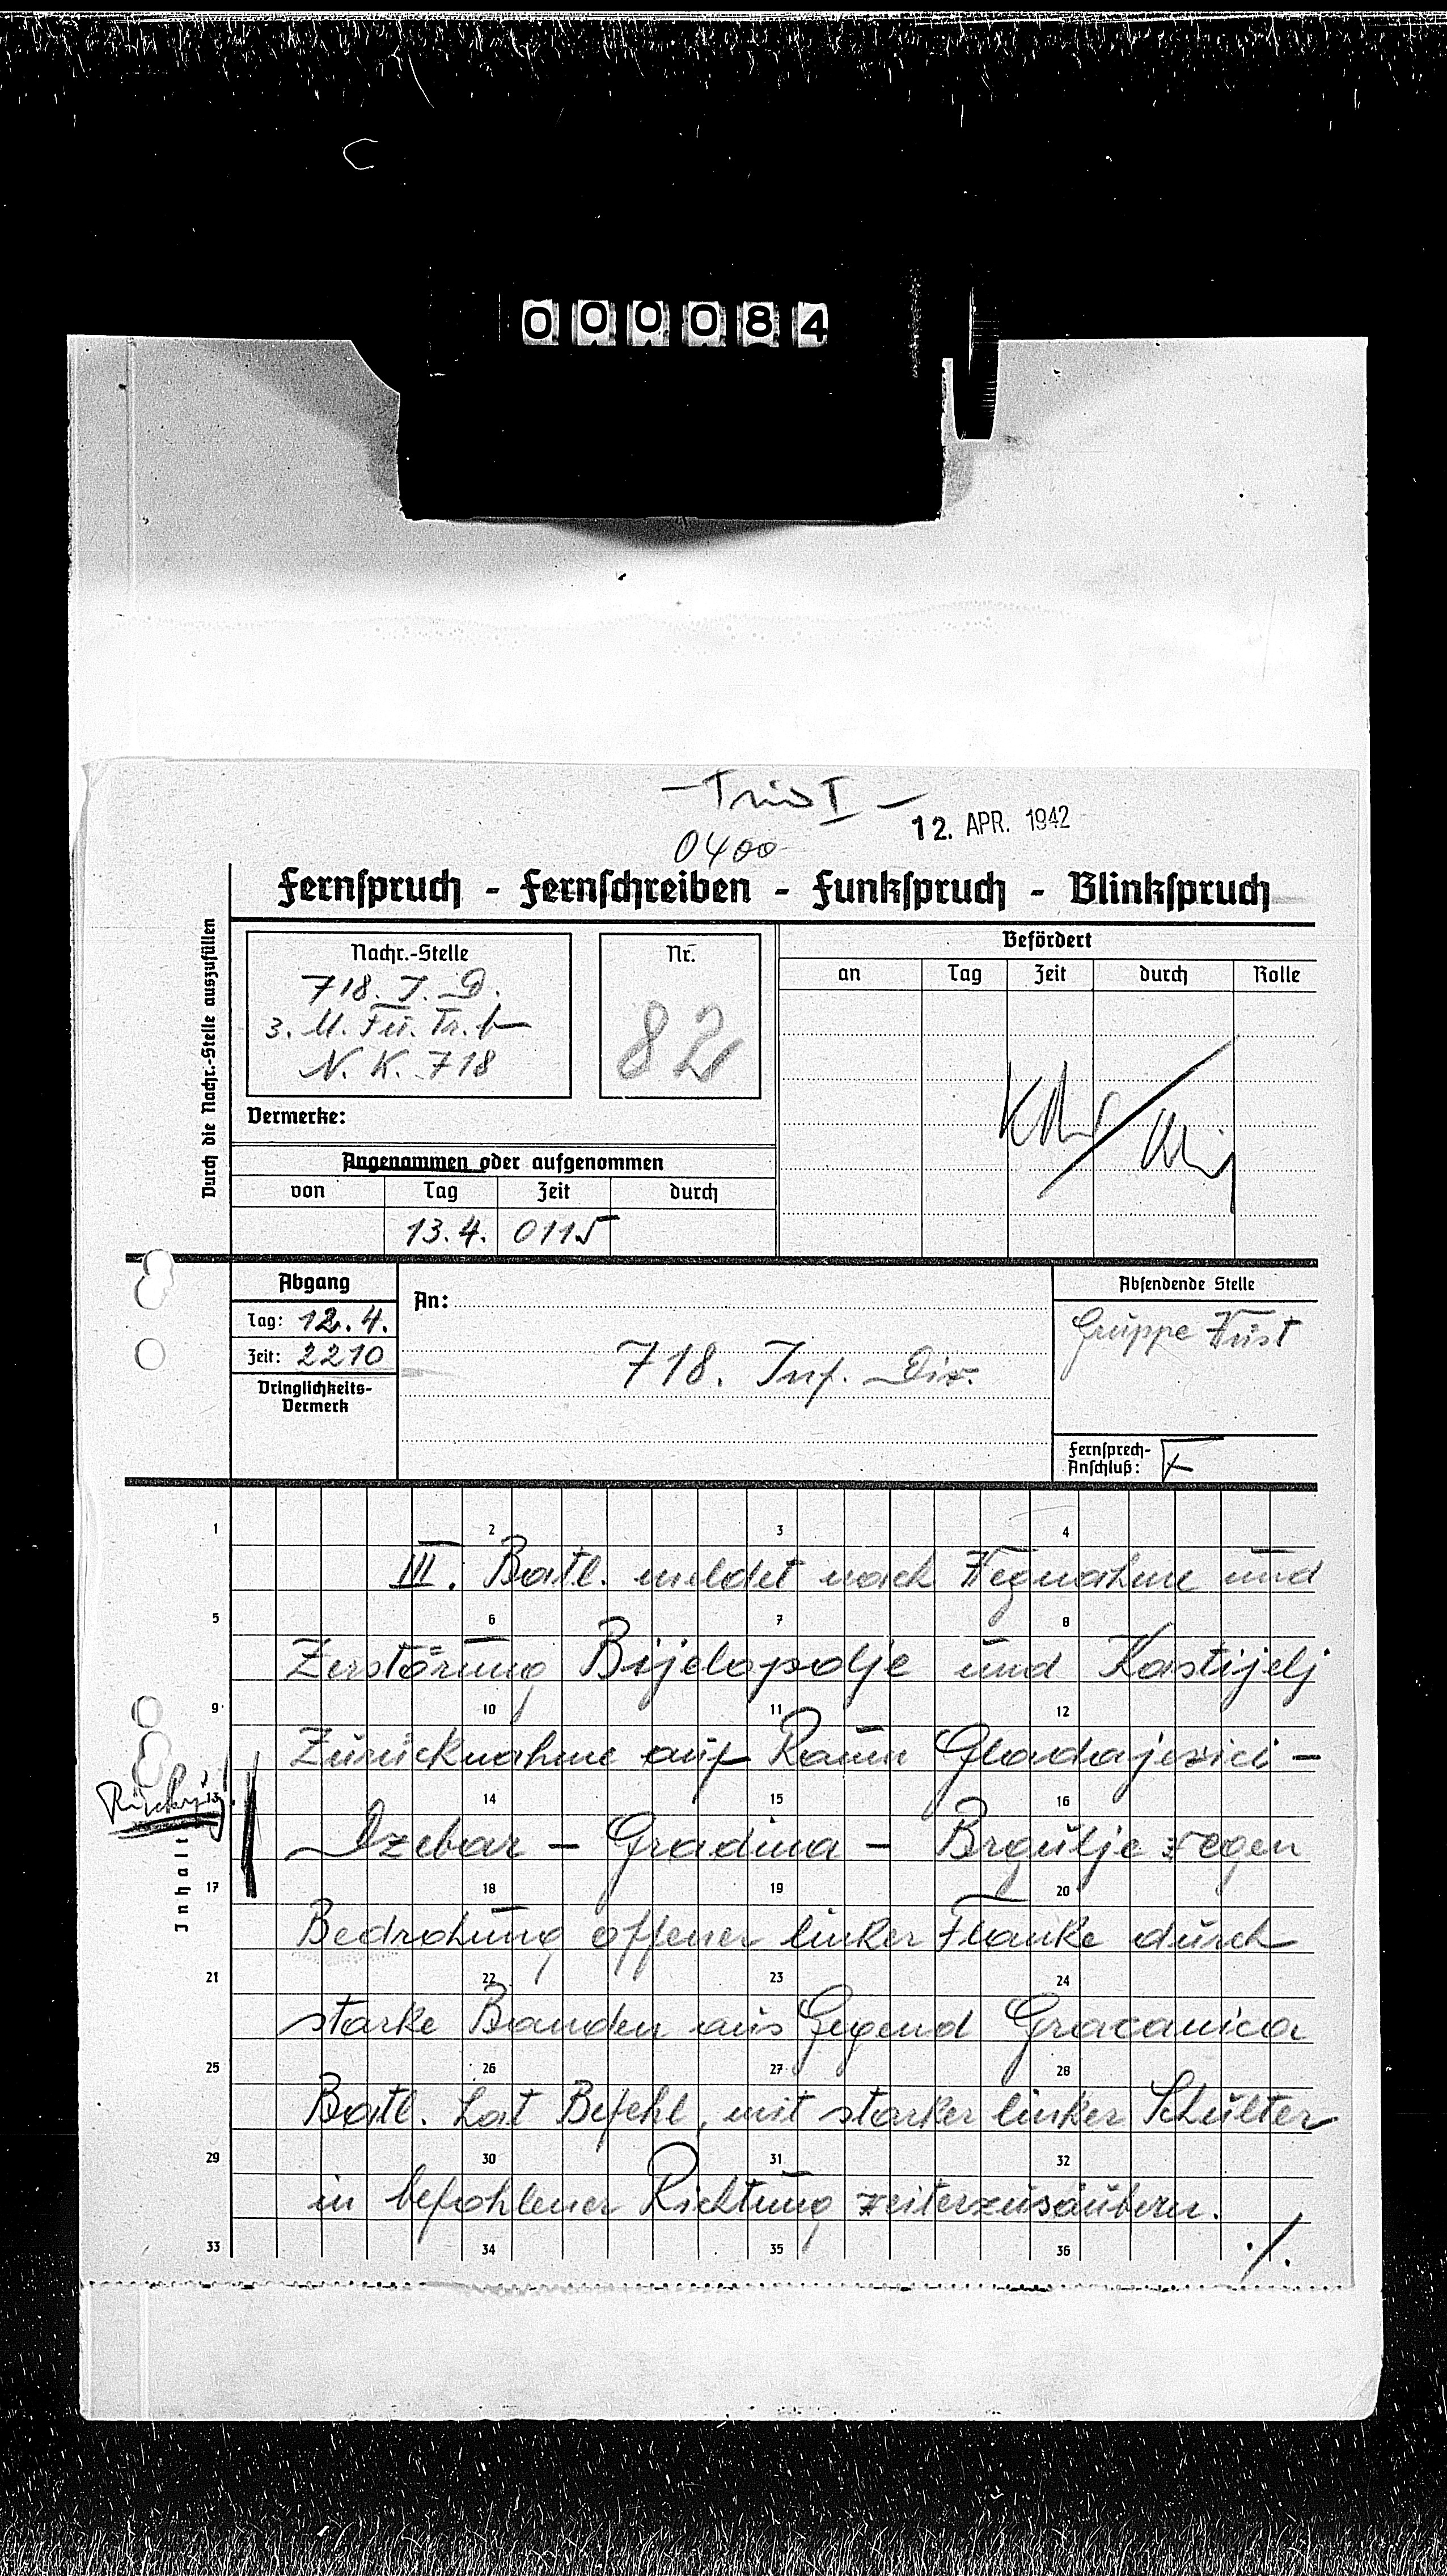 000084
12. APR. 1942
0400
Fernspruch - Fernschreiben - Funkspruch - Blinkspruch
Durch die Nachr.-Stelle auszufüllen
Nachr.-Stelle
718. I. D.
N. K. 718
Nr.
82
Vermerke:
Befördert
an Tag Zeit durch Rolle
Angenommen oder aufgenommen
von Tag Zeit durch
13.4. 0115
Abgang
Tag: 12.4.
Zeit: 2210
Dringlichkeits-
Vermerk
An:
718. Inf. Div.
Absendende Stelle
Gruppe Wüst
Fernsprech-
Anschluß:
1 2 3 4
III. Batl. meldet nach Wegnahme und
5 6 7 8
Zerstörung Bijelopolje und Kastijelj
9 10 11 12
Zurücknahme auf Raum Gladajevici -
13 14 15 16
Izebar - Gradina - Brgulje wegen
17 18 19 20
Bedrohung offener linker Flanke durch
21 22 23 24
starke Banden aus Gegend Gracanica
25 26 27 28
Batl. hat Befehl, mit starker linker Schulter
29 30 31 32
in befohlener Richtung weiterzusäubern.
33 34 35 36
./.
Inhalt